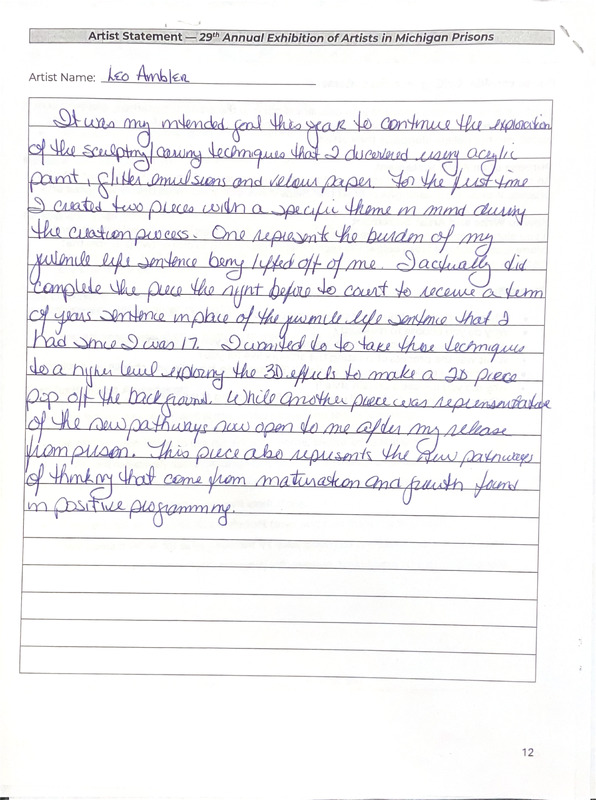 Artist Statement — 29th Annual Exhibition of Artists in Michigan Prisons
Artist Name: Leo Ambler
It was my intended goal this year to continue the exploration
of the sculpting/carving techniques that I discovered using acrylic
paint, glitter emulsions and velour paper. For the first time
I created two pieces with a specific theme in mind during
the creation process. One represents the burden of my
juvenile life sentence being lifted off of me. I actually did
complete the piece the night before to court to receive a term
of years sentence in place of the juvenile life sentence that I
had since I was 17. I wanted to to take these techniques
to a higher level exploring the 3D effects to make a 2D piece
pop off the background. While another piece was representative
of the new pathways now open to me after my release
from prison. This piece also represents the new pathways
of thinking that come from maturation and growth found
in positive programming.
12